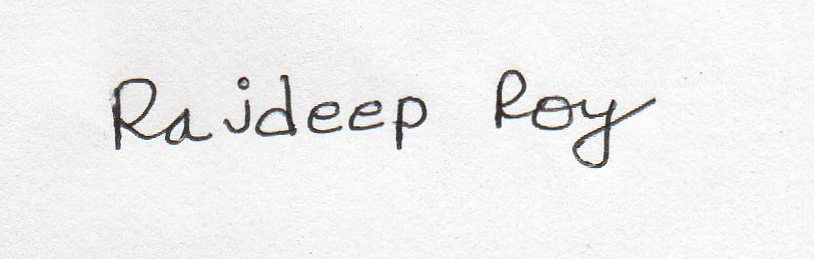 Rajdeep Roy